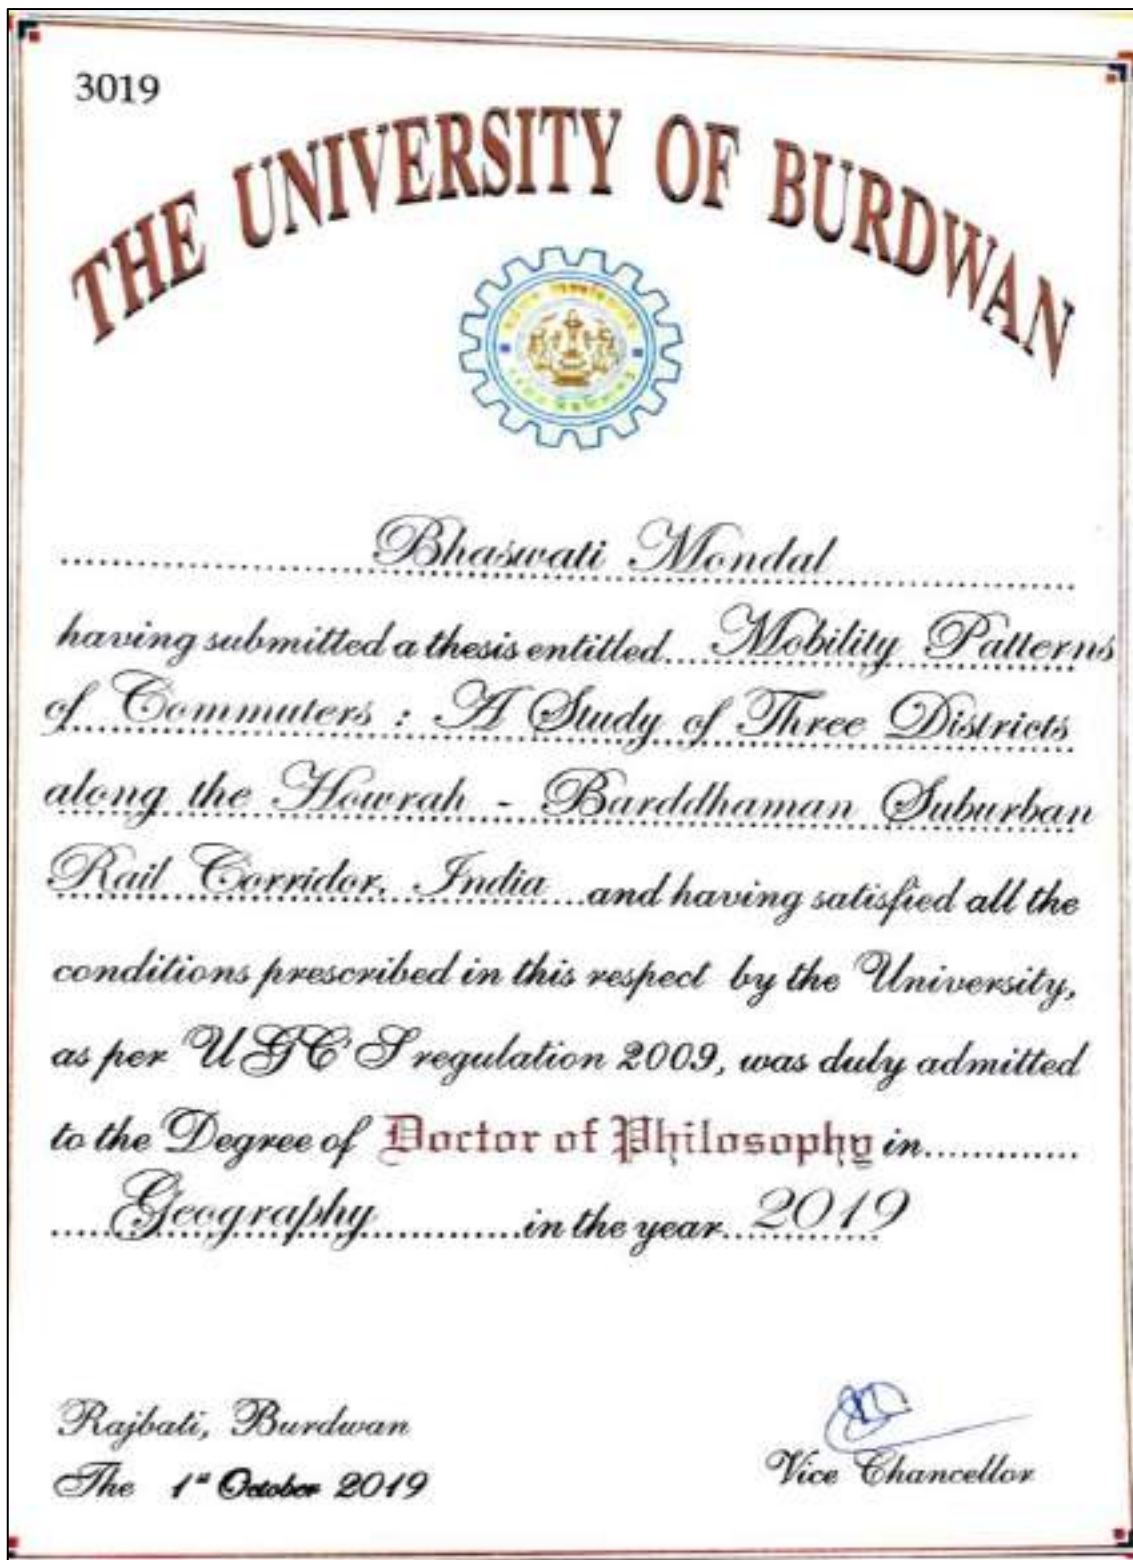 3019
THE UNIVERSITY OF BURDWAN
Bhaswati Mondal
having submitted a thesis entitled Mobility Patterns
of Commuters : A Study of Three Districts
along the Howrah - Barddhaman Suburban
Rail Corridor, India and having satisfied all the
conditions prescribed in this respect by the University,
as per UGC'S regulation 2009, was duly admitted
to the Degree of Doctor of Philosophy in
Geography in the year 2019
Rajbati, Burdwan
The 1st October 2019
Vice Chancellor